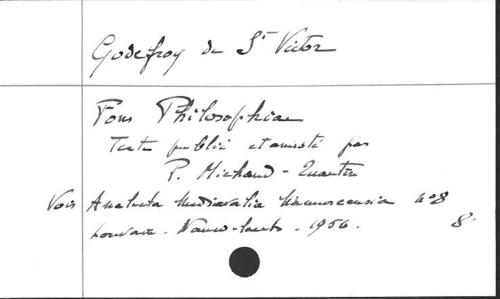 Godefroy de St Victor
Fons Philosophiae
Texte publié et annoté par
P. Michaud-Quantin
Voir Analecta Mediaevalia Namurcensia n°8
Louvain - 1956. 8°